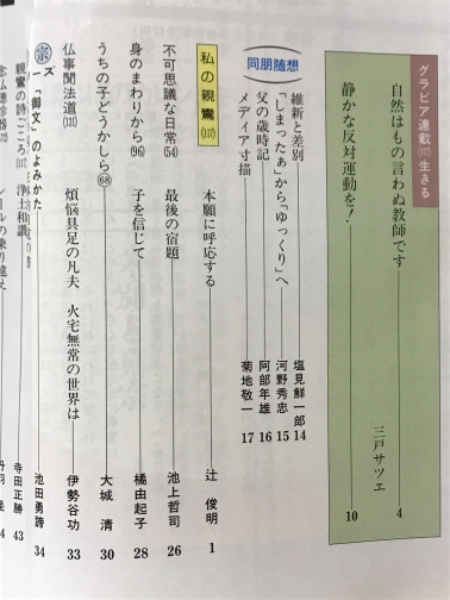 グラビア連載(117)生きる
自然はもの言わぬ教師です 4
静かな反対運動を! 三戸サツエ 10
同朋随想
維新と差別 塩見鮮一郎 14
「しまったぁ」から「ゆっくり」へ 河野秀忠 15
父の歳時記 阿部年雄 16
メディア寸描 菊地敬一 17
私の親鸞(137) 本願に呼応する 辻 俊明 1
不可思議な日常(54) 最後の宿題 池上哲司 26
身のまわりから(96) 子を信じて 橘由起子 28
うちの子どうかしら(68) 大城 清 30
仏事聞法道(131) 煩悩具足の凡夫 火宅無常の世界は 伊勢谷功 33
宗
ズ
ー「御文」のよみかた 池田勇諦 34
親鸞の詩ごころ(107) 浄土和讃 寺田正勝 43